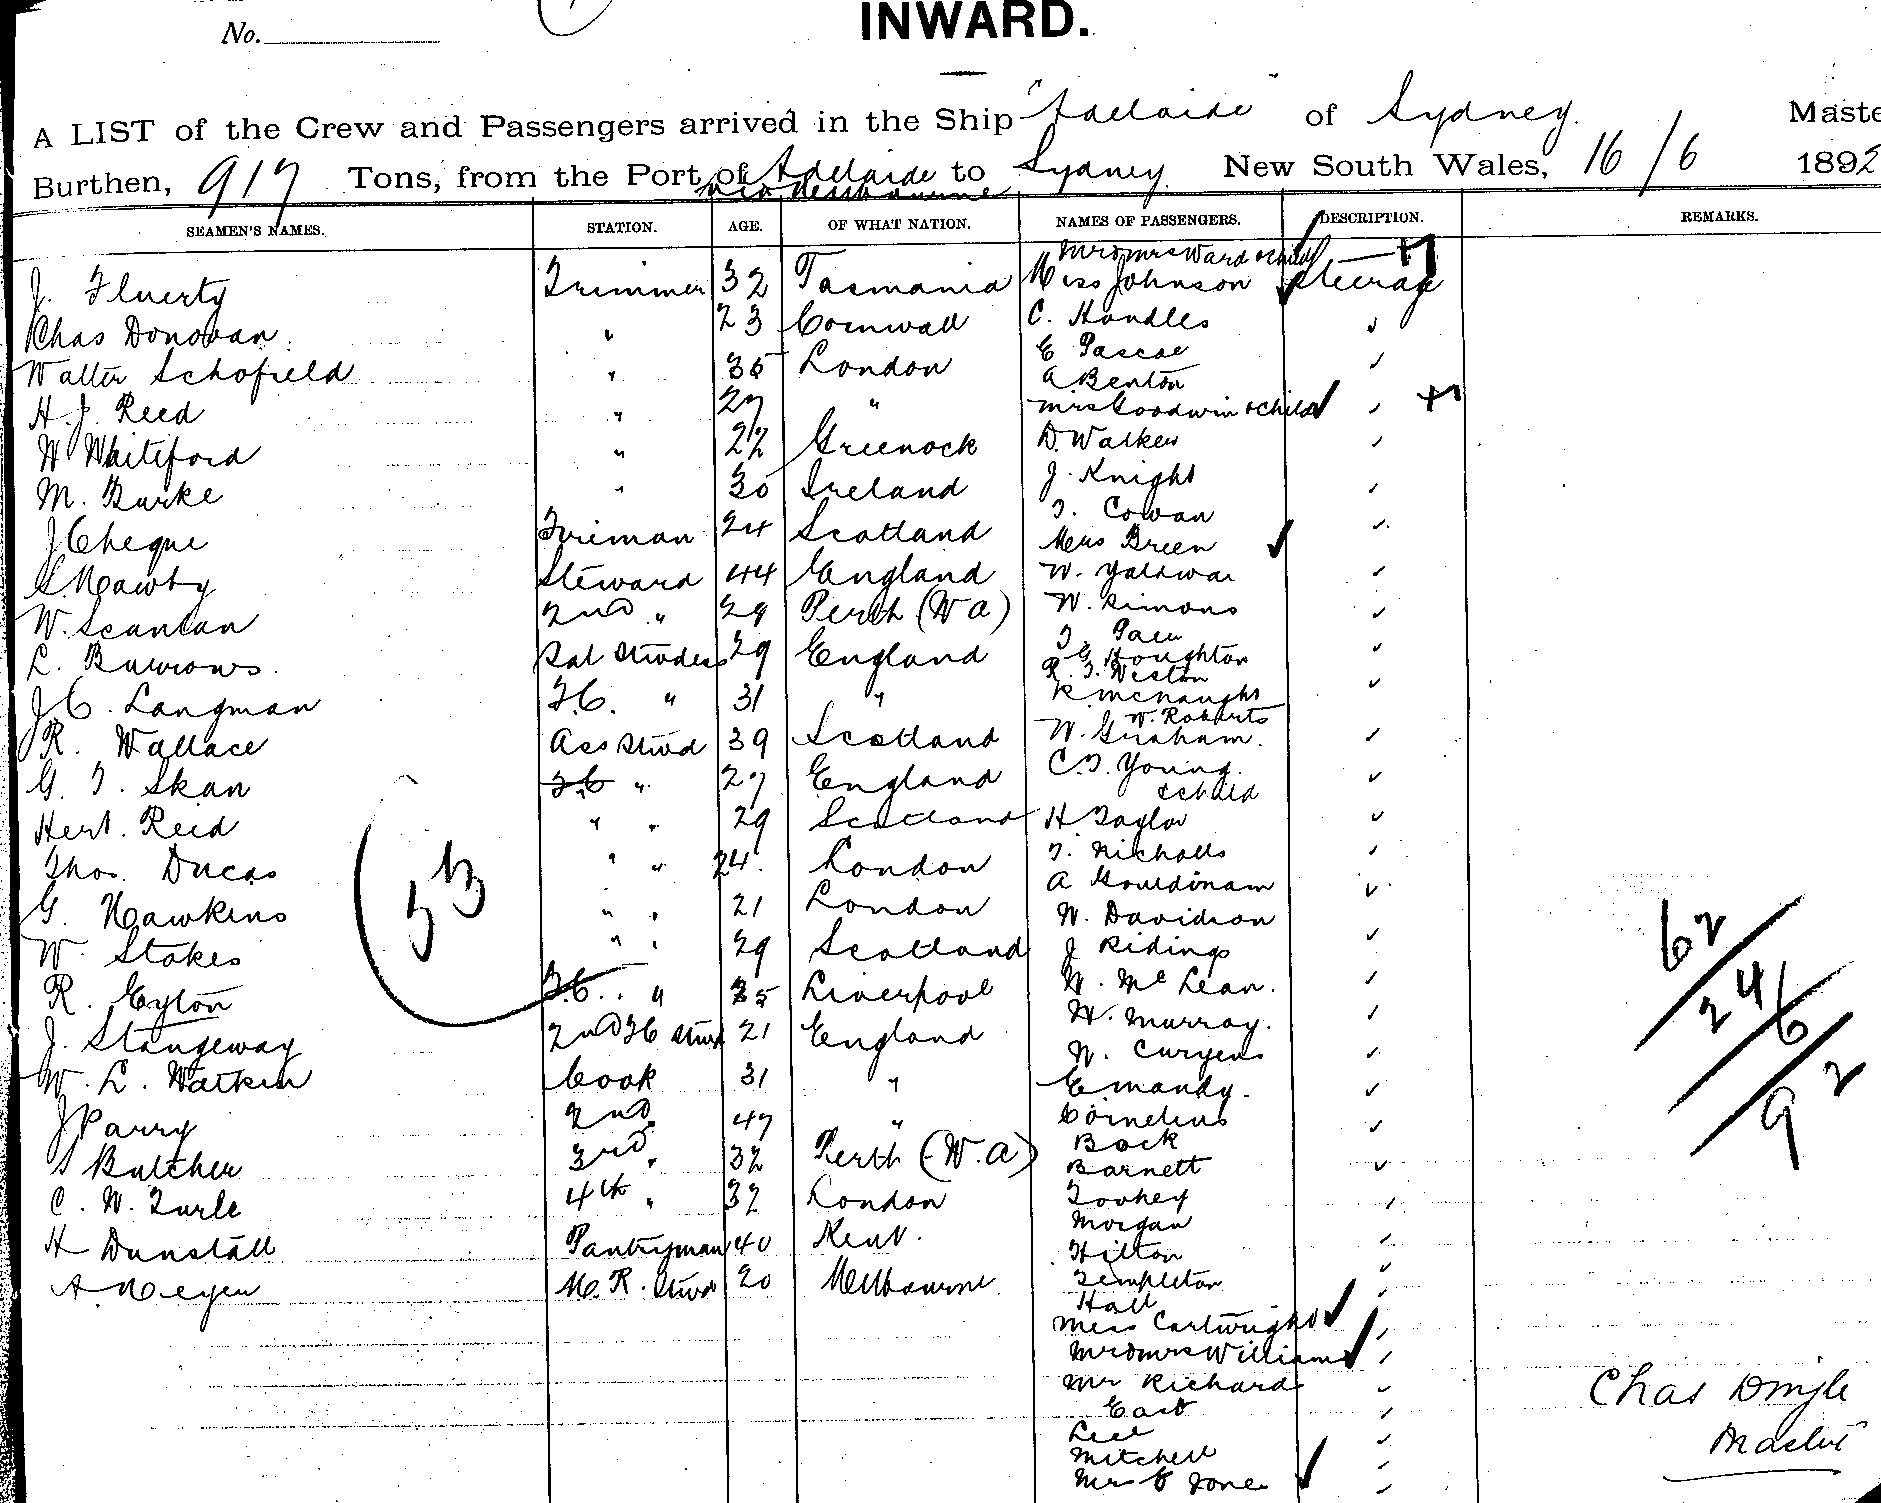 No.
INWARD.
A LIST of the Crew and Passengers arrived in the Ship "Adelaide" of Sydney. Maste
Burthen, 917 Tons, from the Port of Adelaide to Sydney New South Wales, 16/6 1892
via Melbourne
SEAMEN'S NAMES. STATION. AGE. OF WHAT NATION. NAMES OF PASSENGERS. DESCRIPTION. REMARKS.
Mr & Mrs Ward & child
J. Fluerty Trimmer 32 Tasmania Miss Johnson Steerage
Chas Donovan " 23 Cornwall C. Handles
Walter Schofield " 35 London E Pascoe
A Benton
H. J. Reed " 27 " Mrs Goodwin & child
W Whiteford " 22 Greenock D. Walker
M. Burke " 30 Ireland J. Knight
T. Cowan
J Cheque Fireman 24 Scotland Miss Breen
S. Mawby Steward 44 England W.
W. Scanlan 2nd " 29 Perth (W A) W. Simons
T.
L. Burrows Sal Stwdess 29 England T G Houghton
R. T. Weston
J C. Langman F.C. " 31 " R McNaught
W. Roberts
R. Wallace Ass Stwd 39 Scotland W. Graham.
G. T. Skan F.C " 27 England C. T. Young.
& child
Hert. Reid " " 29 Scotland H Taylor
Thos. Ducas " " 24. London T. Nicholls
A
G. Hawkins " " 21 London W. Davidson
W. Stokes " " 29 Scotland J Ridings
R. Eyton F.C. " 35 Liverpool W. McLean.
J. Stangeway 2nd FC Stwd 21 England H. Murray.
W.
W. L. Watkin Cook 31 " E Mandy.
J Parry 2nd " 47 " Cornelius
Bock
S Butcher 3rd " 32 Perth (W.A) Barnett
C. W. Turle 4th " 32 London Toohey
Morgan
H Dunstall Pantryman 40 Kent. Hilton
A. Meyer M. R. Stwd 20 Melbourne Templeton
Hall
Miss Cartwright
Mr & Mrs Williams
Mr Richards
East
Lee
Mitchell
Mr G Jones
53
62
24
6
92
Chas Dingle
Master